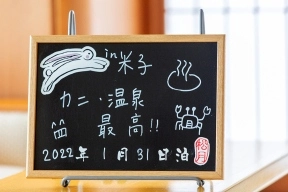 in 米子
カニ・温泉
最高!!
2022年 1月31日泊
松月